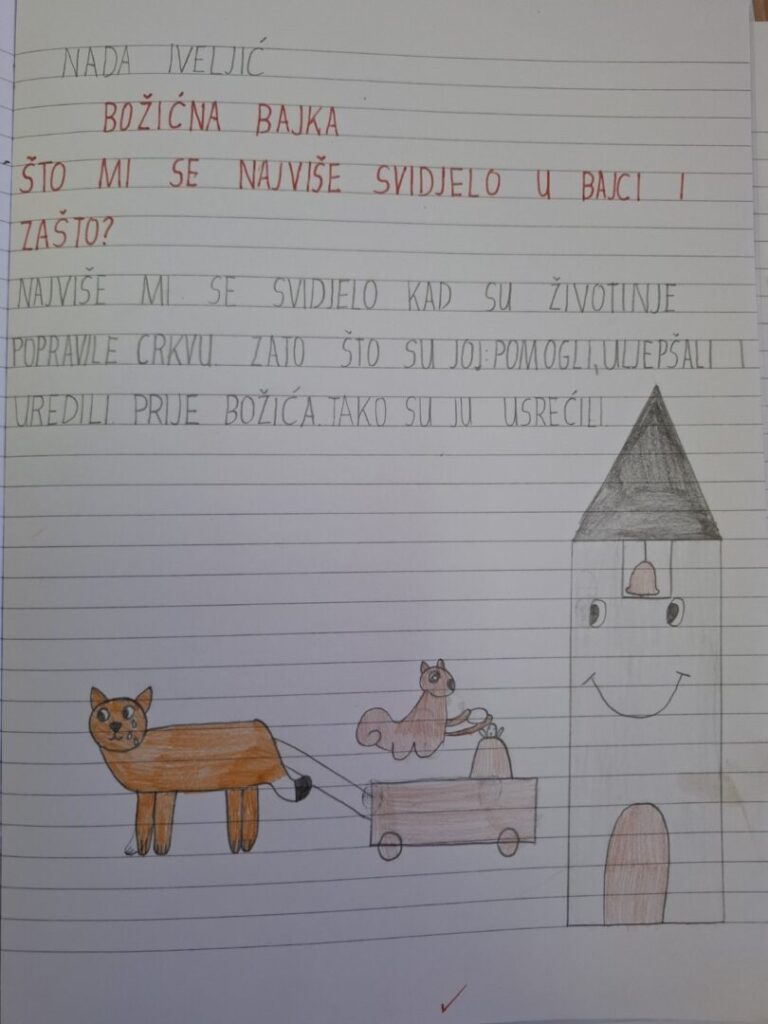 NADA IVELJIĆ
BOŽIĆNA BAJKA
ŠTO MI SE NAJVIŠE SVIDJELO U BAJCI I
ZAŠTO?
NAJVIŠE MI SE SVIDJELO KAD SU ŽIVOTINJE
POPRAVILE CRKVU. ZATO ŠTO SU JOJ POMOGLI, ULJEPŠALI I
UREDILI PRIJE BOŽIĆA. TAKO SU JU USREĆILI.